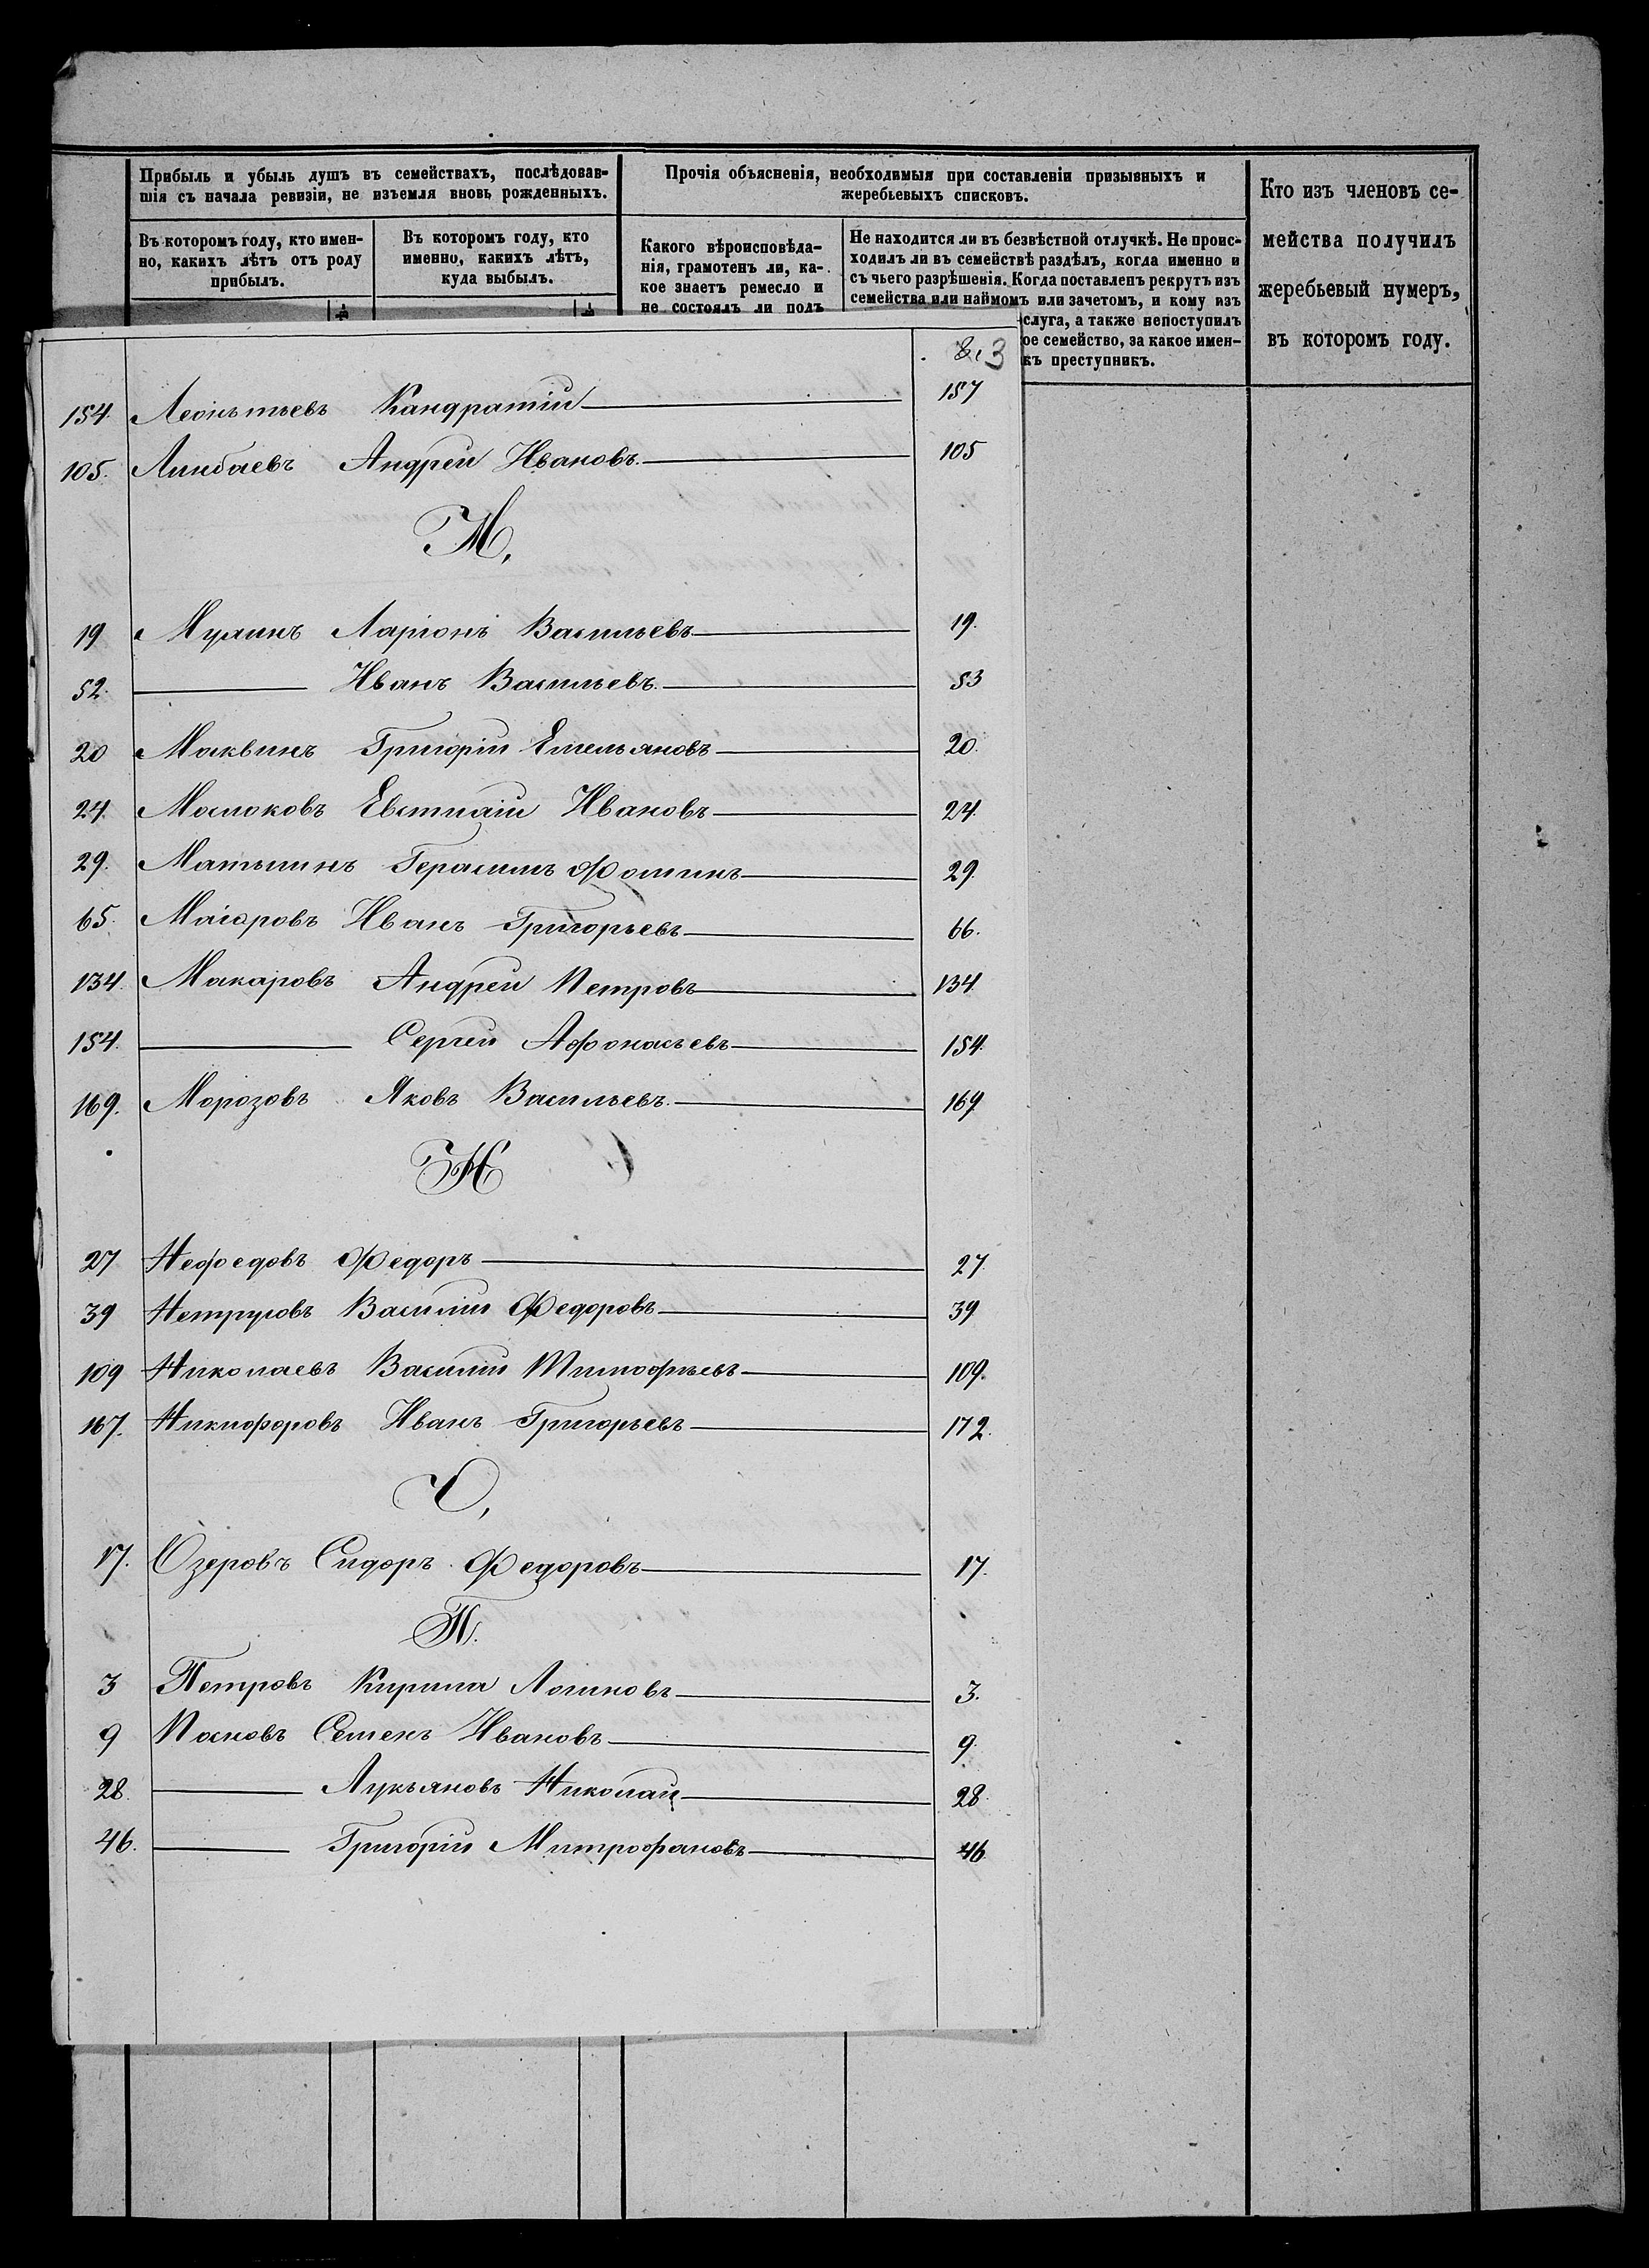 Прибыль и убыль душъ въ семействахъ, послѣдовав-
шія съ начала ревизіи, не изъемля вновь рожденныхъ.
Въ которомъ году, кто имен-
но, какихъ лѣтъ отъ роду
прибылъ.
Въ которомъ году, кто
именно, какихъ лѣтъ,
куда выбылъ.
Прочія объясненія, необходимыя при составленіи призывныхъ и
жеребьевыхъ списковъ.
Какого вѣроисповѣда-
нія, грамотенъ ли, ка-
кое знаетъ ремесло и
не состоялъ ли подъ
Не находится ли въ безвѣстной отлучкѣ. Не проис-
ходилъ ли въ семействѣ раздѣлъ, когда именно и
съ чьего разрѣшенія. Когда поставленъ рекрутъ изъ
семейства или наймомъ или зачетомъ, и кому изъ
слуга, а также непоступилъ
ое семейство, за какое имен-
къ преступникъ.
Кто изъ членовъ се-
мейства получилъ
жеребьевый нумеръ,
въ которомъ году.
3
154. Леонтьевъ Кандратій 157
105. Линбаевъ Андрей Ивановъ. 105
М,
19 Мухинъ Ларіонъ Васильевъ 19.
52. Иванъ Васильевъ. 53
20 Маквинъ Григорій Емельяновъ 20.
24. Молоковъ Евстигній Ивановъ 24.
29. Матынинъ Герасимъ Фоминъ 29.
65. Маіоровъ Иванъ Григорьевъ 66.
134. Макаровъ Андрей Петровъ 134.
154. Сергей Афонасьевъ 154.
169. Морозовъ Яковъ Васильевъ. 169
Н
27 Нефедовъ Федоръ 27.
39 Нетруговъ Василій Федоровъ 39
109 Николаевъ Василій Тимофѣевъ 109.
167. Никифоровъ Иванъ Григорьевъ 172.
О,
17. Озеровъ Сидоръ Федоровъ 17.
П.
3 Петровъ Кирила Логиновъ 3.
9 Поновъ Семенъ Ивановъ 9.
28. Лукьяновъ Николай 28.
46. Григорій Митрофановъ 46.